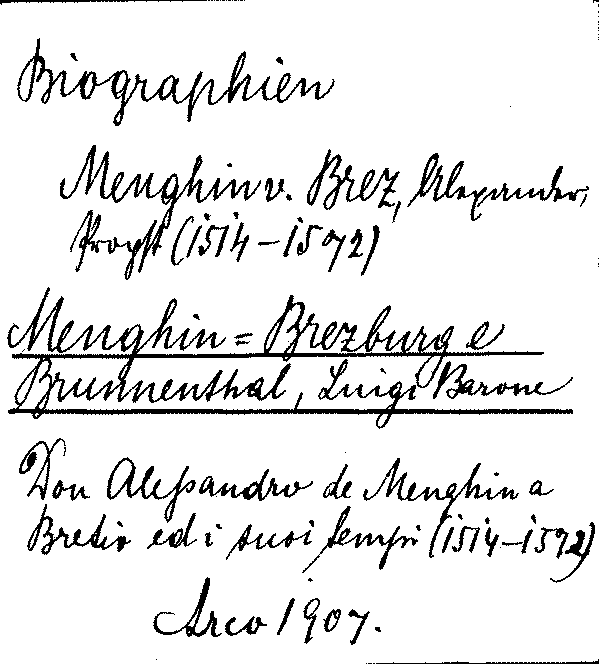 Biographien
Menghin v. Brez, Alexander,
Propst (1514-1572)
Menghin=Brezburg e
Brunnenthal, Luigi Barone
Don Aleßandro de Menghin a
Bretio ed i suoi tempi (1514-1572)
Arco 1907.